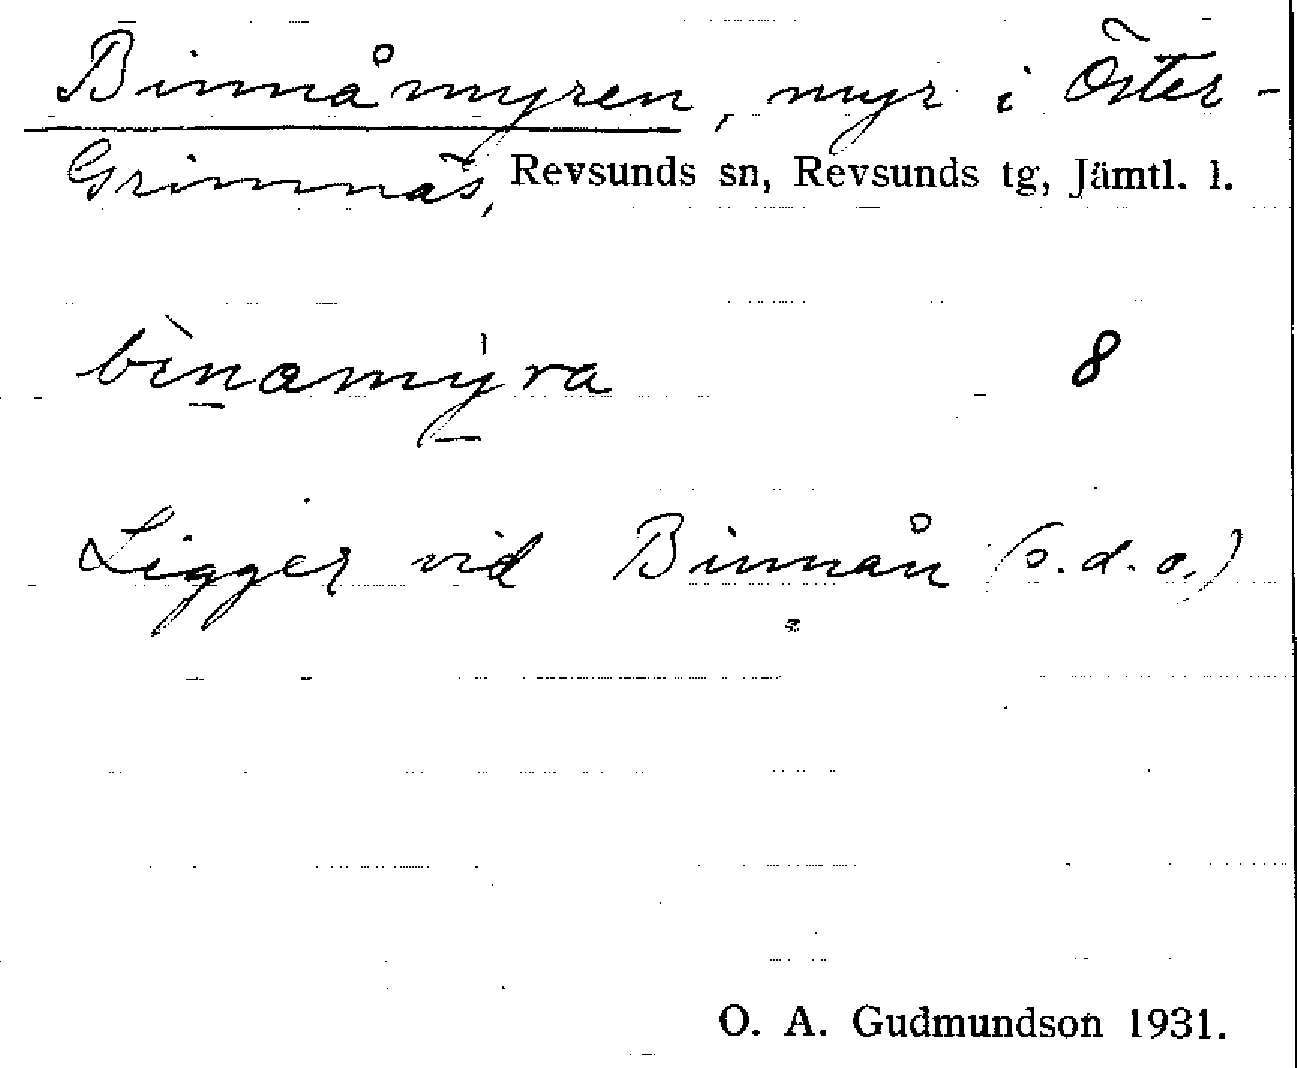 Binnåmyren, myr i Öster-
Grimnäs, Revsunds sn, Revsunds tg, Jämtl. l.
bìnamy̍ra 8
Ligger vid Binnån (s.d.o.)
O. A. Gudmundson 1931.